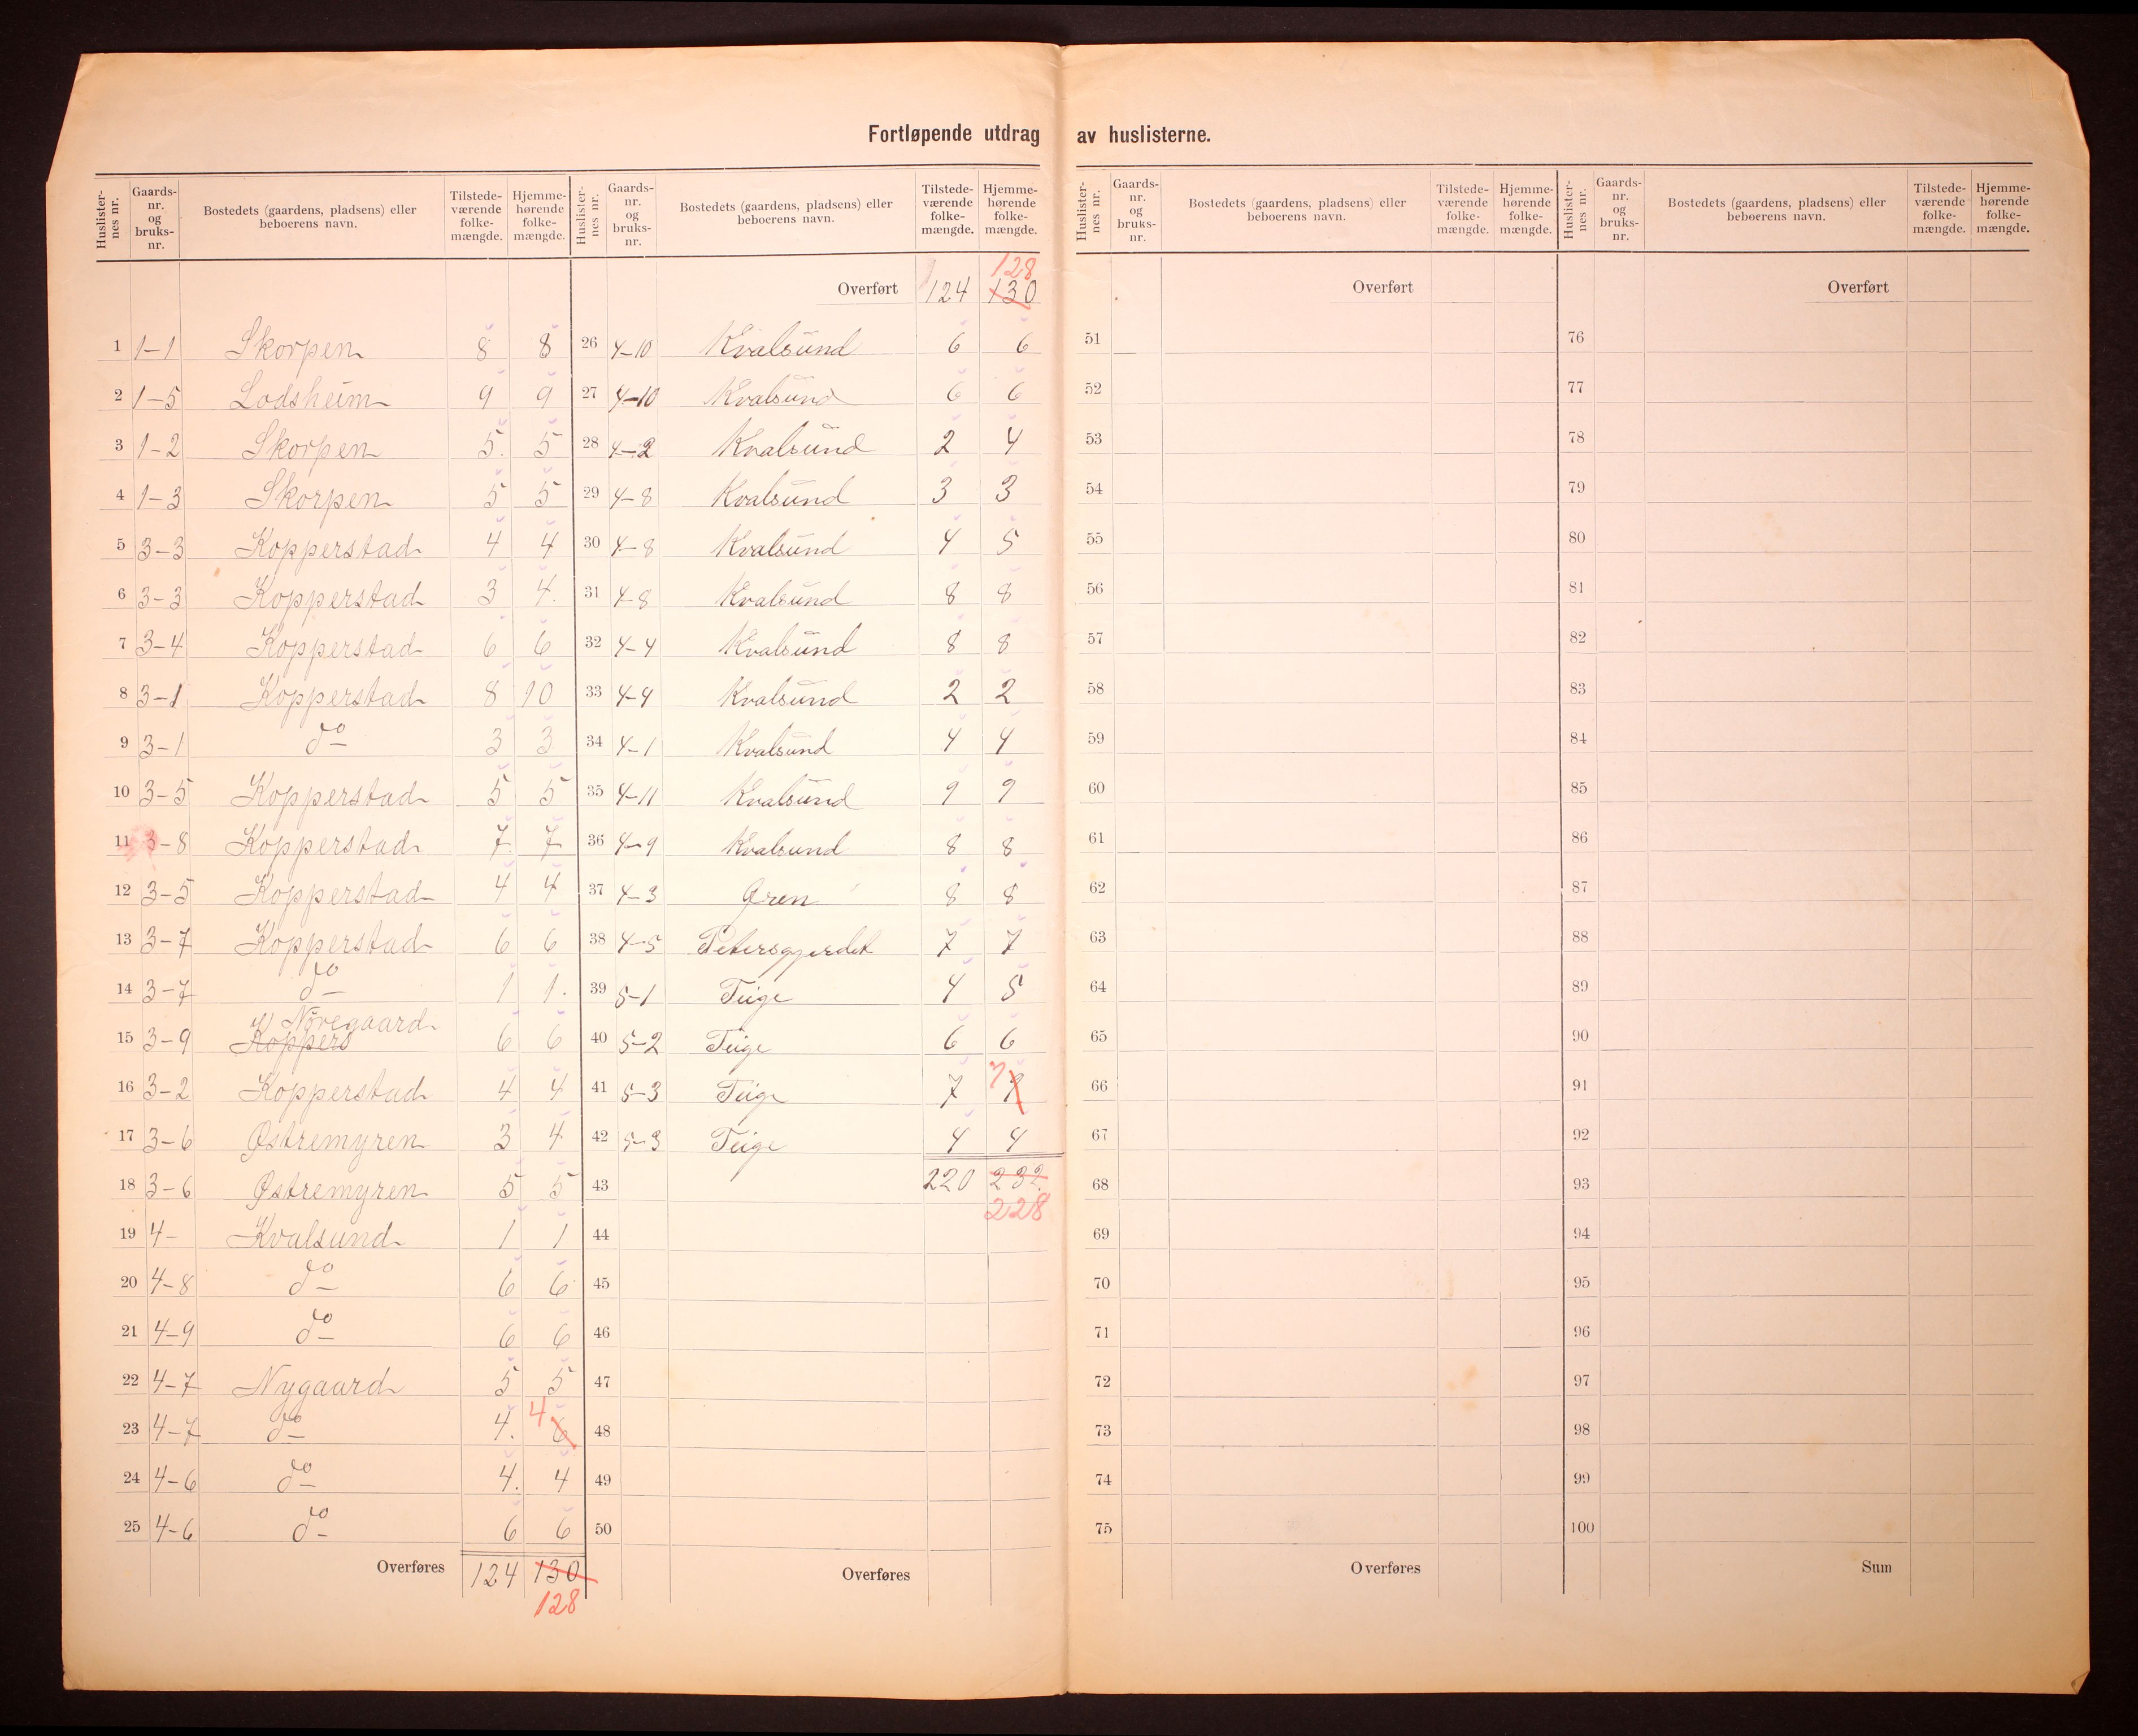 Fortløpende utdrag av huslisterne.
Huslisternes nr. Gaards-nr. og bruks-nr. Bostedets (gaardens, pladsens) eller beboerens navn. Tilstedeværende folkemængde. Hjemmehørende folkemængde.
1 1-1 Skorpen 8 8
2 1-5 Lodsheim 9 9
3 1-2 Skorpen 5. 5
4 1-3 Skorpen 5 5
5 3-3 Kopperstad 4 4
6 3-3 Kopperstad 3 4.
7 3-4 Kopperstad 6 6
8 3-1 Kopperstad 8 10
9 3-1 do 3 3
10 3-5 Kopperstad 5 5
11 3-8 Kopperstad 7. 7
12 3-5 Kopperstad 4 4
13 3-7 Kopperstad 6 6
14 3-7 do 1 1.
Nöregaard
15 3-9 Koppers 6 6
16 3-2 Kopperstad 4 4
17 3-6 Østremyren 3 4
18 3-6 Østremyren 5 5
19 4- Kvalsund 1 1
20 4-8 do 6 6
21 4-9 do 6 6
22 4-7 Nygaard 5 5
23 4-7 do 4. 4 6
24 4-6 do 4. 4
25 4-6 do 6 6
Overføres 124 130
128
Huslisternes nr. Gaards-nr. og bruks-nr. Bostedets (gaardens, pladsens) eller beboerens navn. Tilstedeværende folkemængde. Hjemmehørende folkemængde.
128
Overført 124 130
26 4-10 Kvalsund 6 6
27 4-10 Kvalsund 6 6
28 4-2 Kvalsund 2 4
29 4-8 Kvalsund 3 3
30 4-8 Kvalsund 4 5
31 4-8 Kvalsund 8 8
32 4-4 Kvalsund 8 8
33 4-4 Kvalsund 2 2
34 4-1 Kvalsund 4 4
35 4-11 Kvalsund 9 9
36 4-9 Kvalsund 8 8
37 4-3 Øren 8 8
38 4-5 Petersgjerdet 7 7
39 5-1 Teige 4 5
40 5-2 Teige 6 6
41 5-3 Teige 7 7 9
42 5-3 Teige 4 4
43 220 232.
228
44
45
46
47
48
49
50
Overføres
Huslisternes nr. Gaards-nr. og bruks-nr. Bostedets (gaardens, pladsens) eller beboerens navn. Tilstedeværende folkemængde. Hjemmehørende folkemængde.
Overført
51
52
53
54
55
56
57
58
59
60
61
62
63
64
65
66
67
68
69
70
71
72
73
74
75
Overføres
Huslisternes nr. Gaards-nr. og bruks-nr. Bostedets (gaardens, pladsens) eller beboerens navn. Tilstedeværende folkemængde. Hjemmehørende folkemængde.
Overført
76
77
78
79
80
81
82
83
84
85
86
87
88
89
90
91
92
93
94
95
96
97
98
99
100
Sum